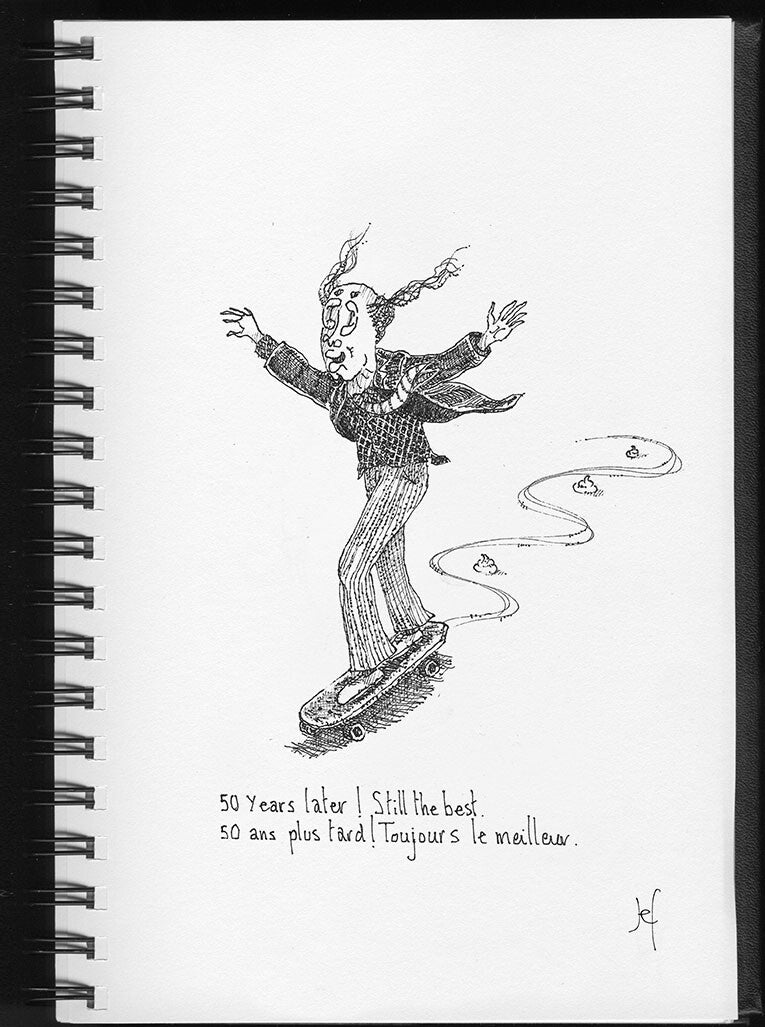 50 Years later ! Still the best.
50 ans plus tard! Toujours le meilleur.
Jef